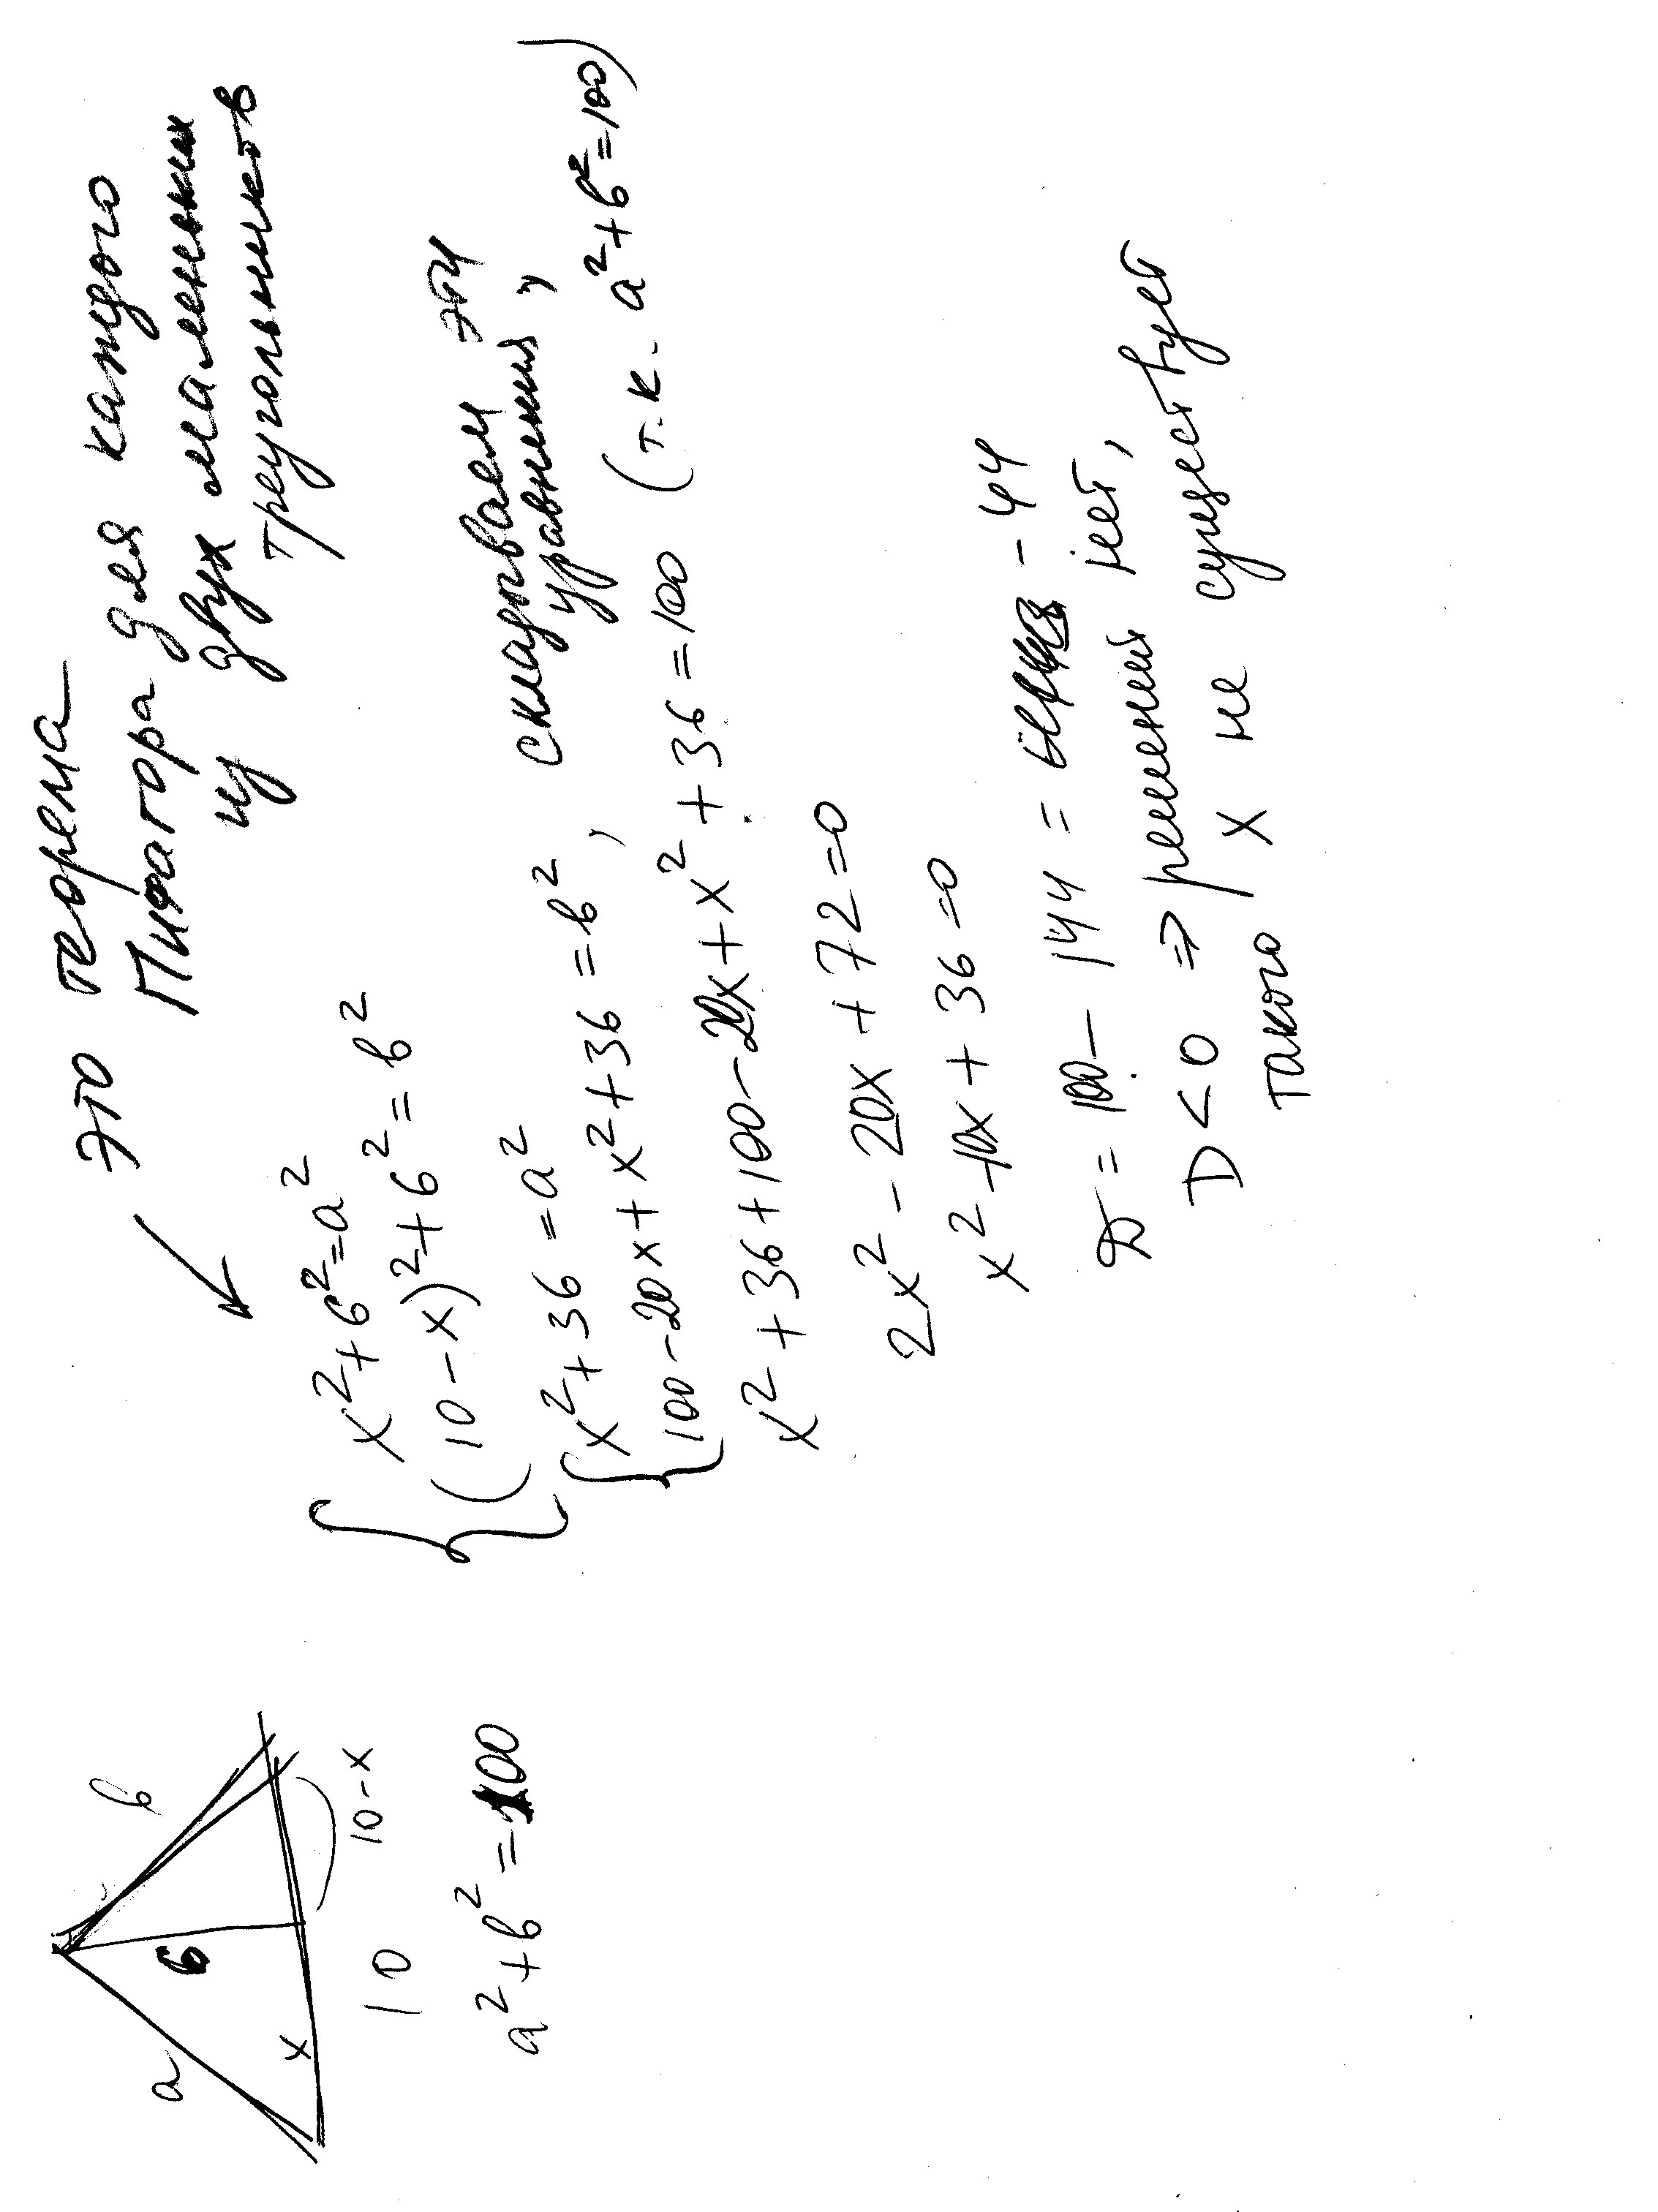 это теорема
Пифагора для каждого
из двух маленьких
треугольников
a
b
6
x
10-x
10
a²+b²=100
x²+6²=a²
(10-x)²+6²=b²
x²+36=a²
100-20x+x²+36=b², складываем эти
уравнения,
x²+36+100-20x+x²+36=100 (т.к. a²+b²=100)
2x²-20x+72=0
x²-10x+36=0
D=100-144= -44
D<0 ⇒ решений нет,
такого x не существует